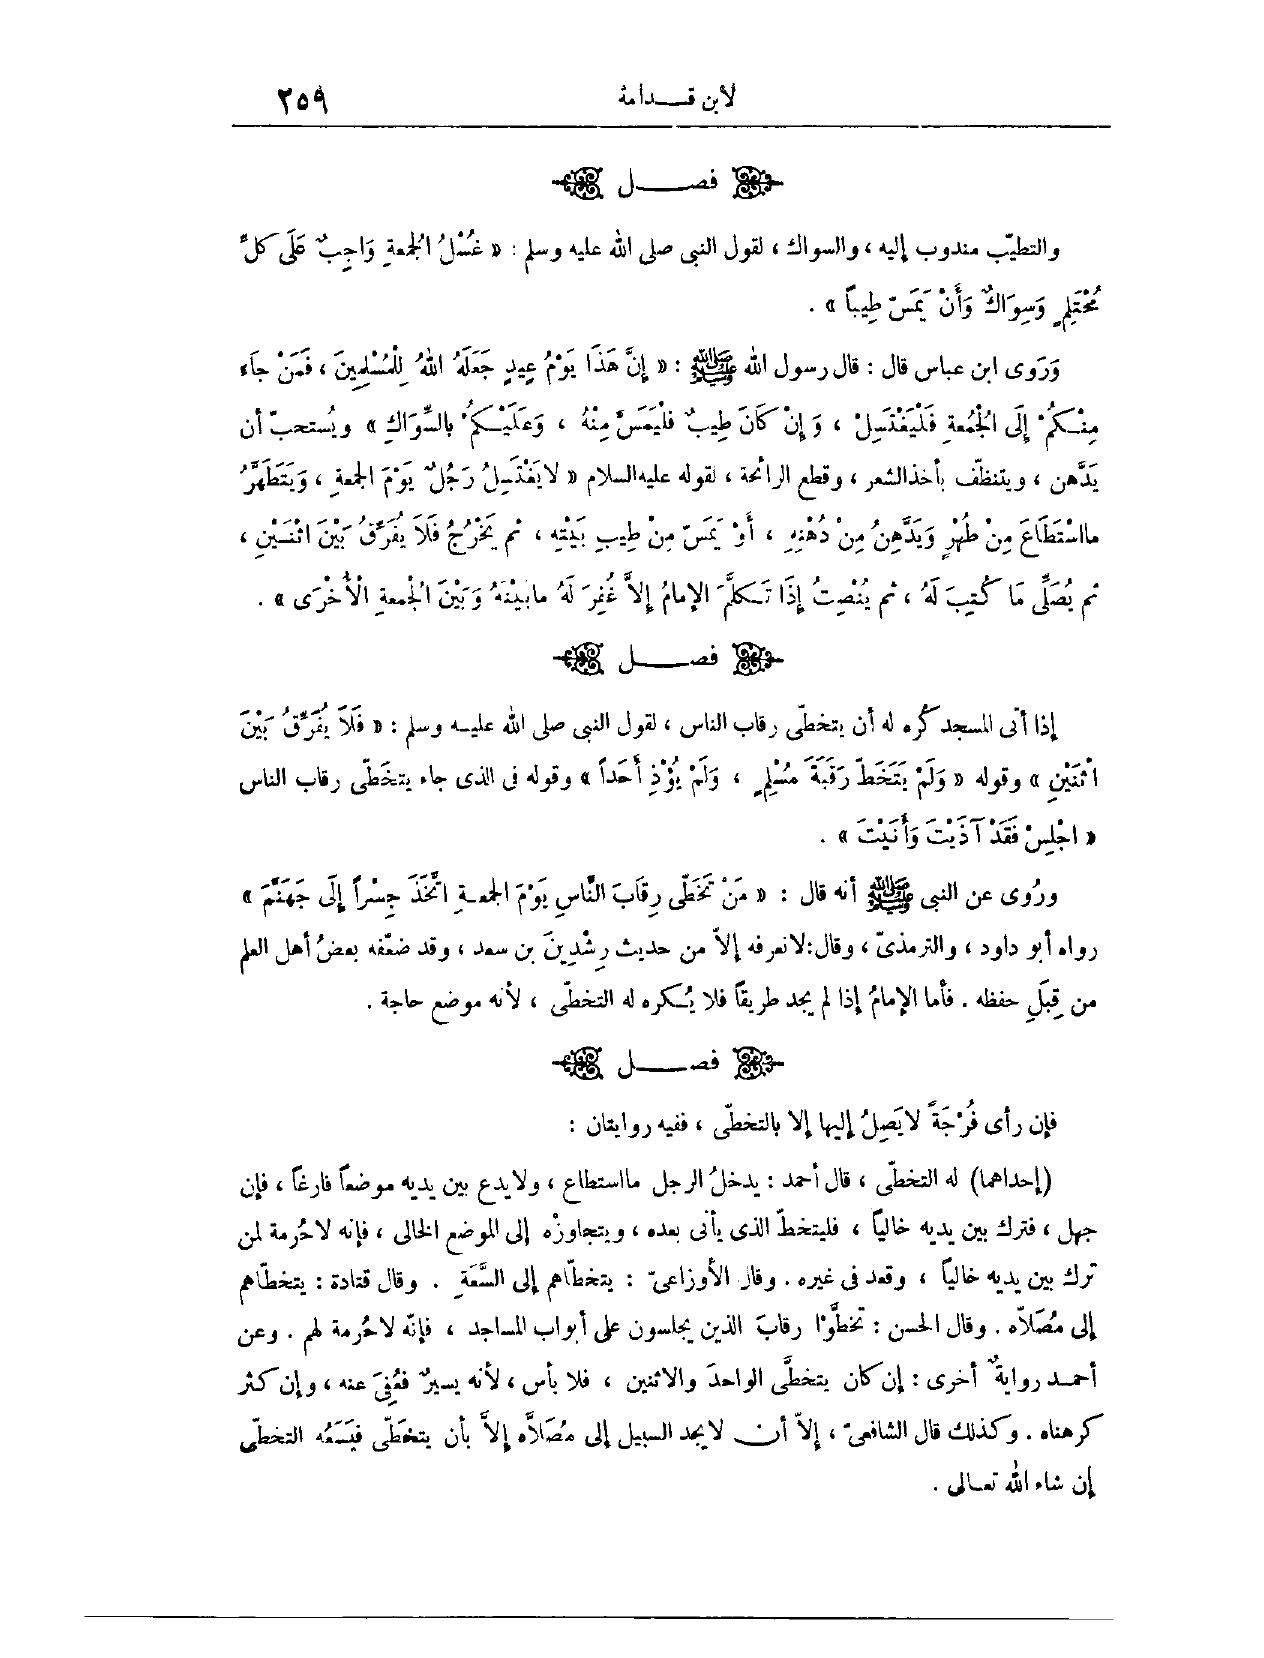 لابن قــدامة ٢٥٩
فصــل
والتطيّب مندوب إليه ، والسواك ، لقول النبى صلى الله عليه وسلم : « غُسْلُ الجمعةِ وَاجِبٌ عَلَى كلِّ
مُحْتَلِمٍ وَسِوَاكٌ وَأَنْ يَمَسّ طِيباً » .
وَرَوى ابن عباس قال : قال رسول الله ﷺ : « إِنَّ هَذَا يَوْمُ عِيدٍ جَعَلَهُ اللهُ لِلْمُسْلِمِينَ ، فَمَنْ جَاء
مِنْكُمْ إِلَى الْجُمُعةِ فَلْيَغْتَسِلْ ، وَإِنْ كَانَ طِيبٌ فلْيَمَسَّ مِنْهُ ، وَعَلَيْكُمْ بالسِّوَاكِ » ويُستحبّ أن
يَدَّهن ، ويتنظّف بأخذ الشعر ، وقطع الرائحة ، لقوله عليه السلام « لا يَغْتَسِلُ رَجُلٌ يَوْمَ الجمعةِ ، وَيَتَطَهَّرُ
ما اسْتَطَاعَ مِنْ طُهْرٍ وَيَدَّهِنُ مِنْ دُهْنِهِ ، أَوْ يَمَسّ مِنْ طِيبِ بَيْتِه ، ثم يَخْرُجُ فَلَا يُفَرِّقُ بَيْنَ اثْنَيْنِ ،
ثم يُصَلِّى مَا كُتِبَ لَهُ ، ثم يُنْصِتُ إِذَا تَكلَّمَ الإمامُ إلاَّ غُفِرَ لَهُ ما بَيْنَهُ وَبَيْنَ الجُمعةِ الْأُخْرَى » .
فصــل
إذا أتى المسجد كُره له أن يتخطّى رقاب الناس ، لقول النبى صلى الله عليه وسلم : « فَلَا يُفَرِّقُ بَيْنَ
اثْنَيْنِ » وقوله « وَلَمْ يَتَخَطَّ رَقَبَةَ مُسْلِمٍ ، وَلَمْ يُؤْذِ أَحَداً » وقوله فى الذى جاء يتخَطّى رقاب الناس
« اجْلِسْ فَقَدْ آذَيْتَ وَأَنَيْتَ » .
ورُوى عن النبى ﷺ أنه قال : « مَنْ تَخَطّى رِقَابَ النَّاسِ يَوْمَ الجمعةِ اتَّخَذَ جِسْراً إِلَى جَهَنَّمَ »
رواه أبو داود ، والترمذىّ ، وقال: لا نعرفه إلاّ من حديث رِشْدِينَ بن سعد ، وقد ضعّفه بعضُ أهل العلم
من قِبَلِ حفظه . فأما الإمامُ إذا لم يجد طريقاً فلا يُكره له التخطّى ، لأنه موضع حاجة .
فصــل
فإن رأى فُرْجَةً لا يَصِلُ إليها إلا بالتخطّى ، ففيه روايتان :
(إحداهما) له التخطّى ، قال أحمد : يدخلُ الرجل ما استطاع ، ولا يدع بين يديه موضعاً فارغاً ، فإن
جهل ، فترك بين يديه خالياً ، فليتخطّ الذى يأتى بعده ، ويتجاوزْه إلى الموضع الخالى ، فإنه لا حُرمة لمن
ترك بين يديه خالياً ، وقعد فى غيره . وقال الأوزاعىّ : يتخطّاهم إلى السَّعَةِ . وقال قتادة : يتخطّاهم
إلى مُصَلّاه . وقال الحسن : تخطَّوْا رقابَ الذين يجلسون على أبواب المساجد ، فإنّه لا حُرمة لهم . وعن
أحمد روايةٌ أخرى : إن كان يتخطَّى الواحدَ والاثنين ، فلا بأس ، لأنه يسيرٌ فعُفِىَ عنه ، وإن كثر
كرهناه . وكذلك قال الشافعىّ ، إلاّ أن لا يجد السبيل إلى مُصَلاَّه إلاَّ بأن يتخَطّى فيَسَعُه التخطّى
إن شاء الله تعالى .